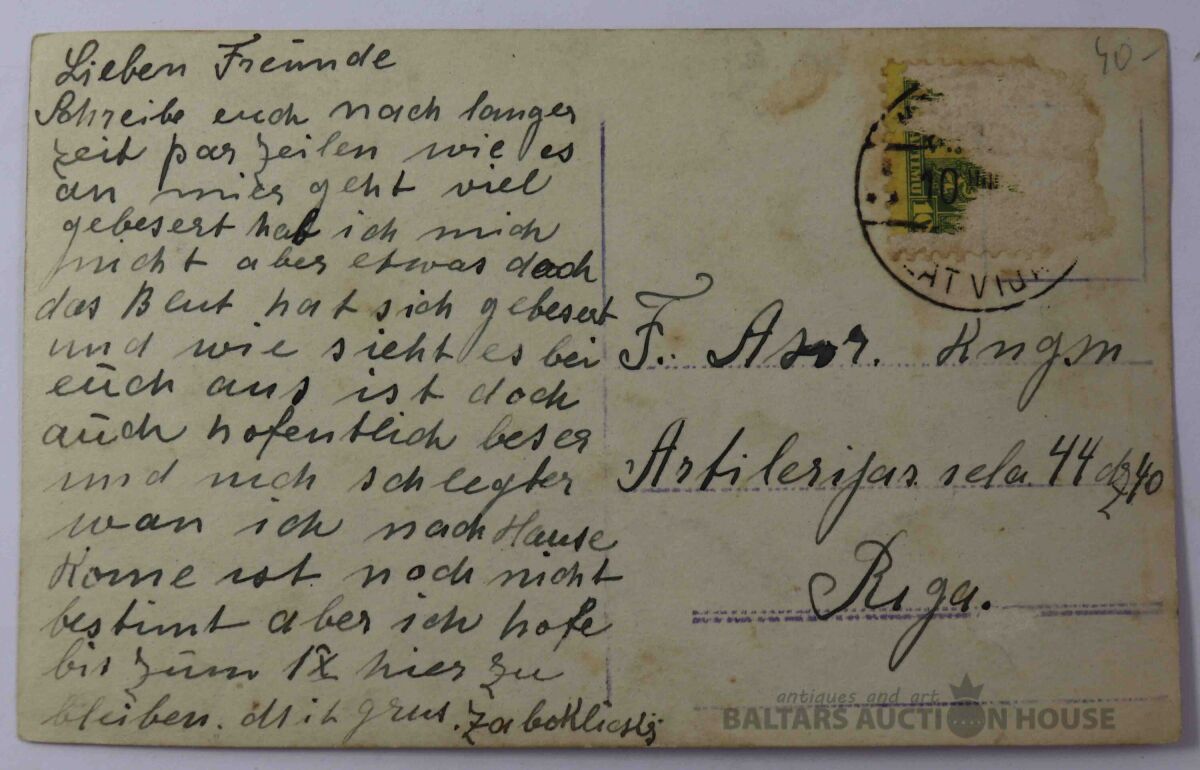 Lieben Freunde
Schreibe euch nach langer
zeit par zeilen wie es
an mier geht viel
gebesert hab ich mich
nicht aber etwas doch
das Blut hat sich gebesert
und wie sieht es bei
euch aus ist doch
auch hofentlich beser
und nich schlegter
wan ich nach Hause
Kome ist noch nicht
bestimt aber ich hofe
bis zum IX hier zu
bleiben. Mit grus.
40-
10
LATVIJA
F.
Artilerijas iela 44 dz 40
Riga.
antiques and art
BALTARS AUCTION HOUSE